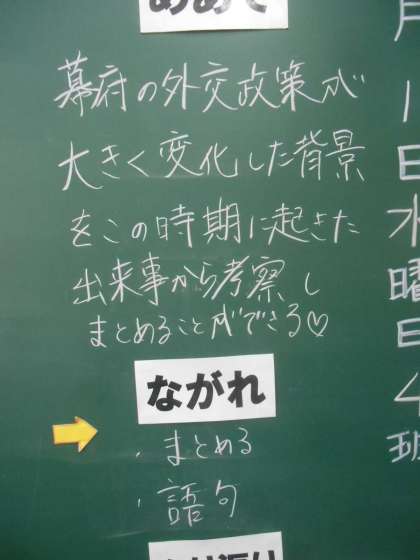 めあて
幕府の外交政策が
大きく変化した背景
をこの時期に起きた
出来事から考察し
まとめることができる♡
ながれ
・まとめる
・語句
月
1
日
水
曜
日
4
班